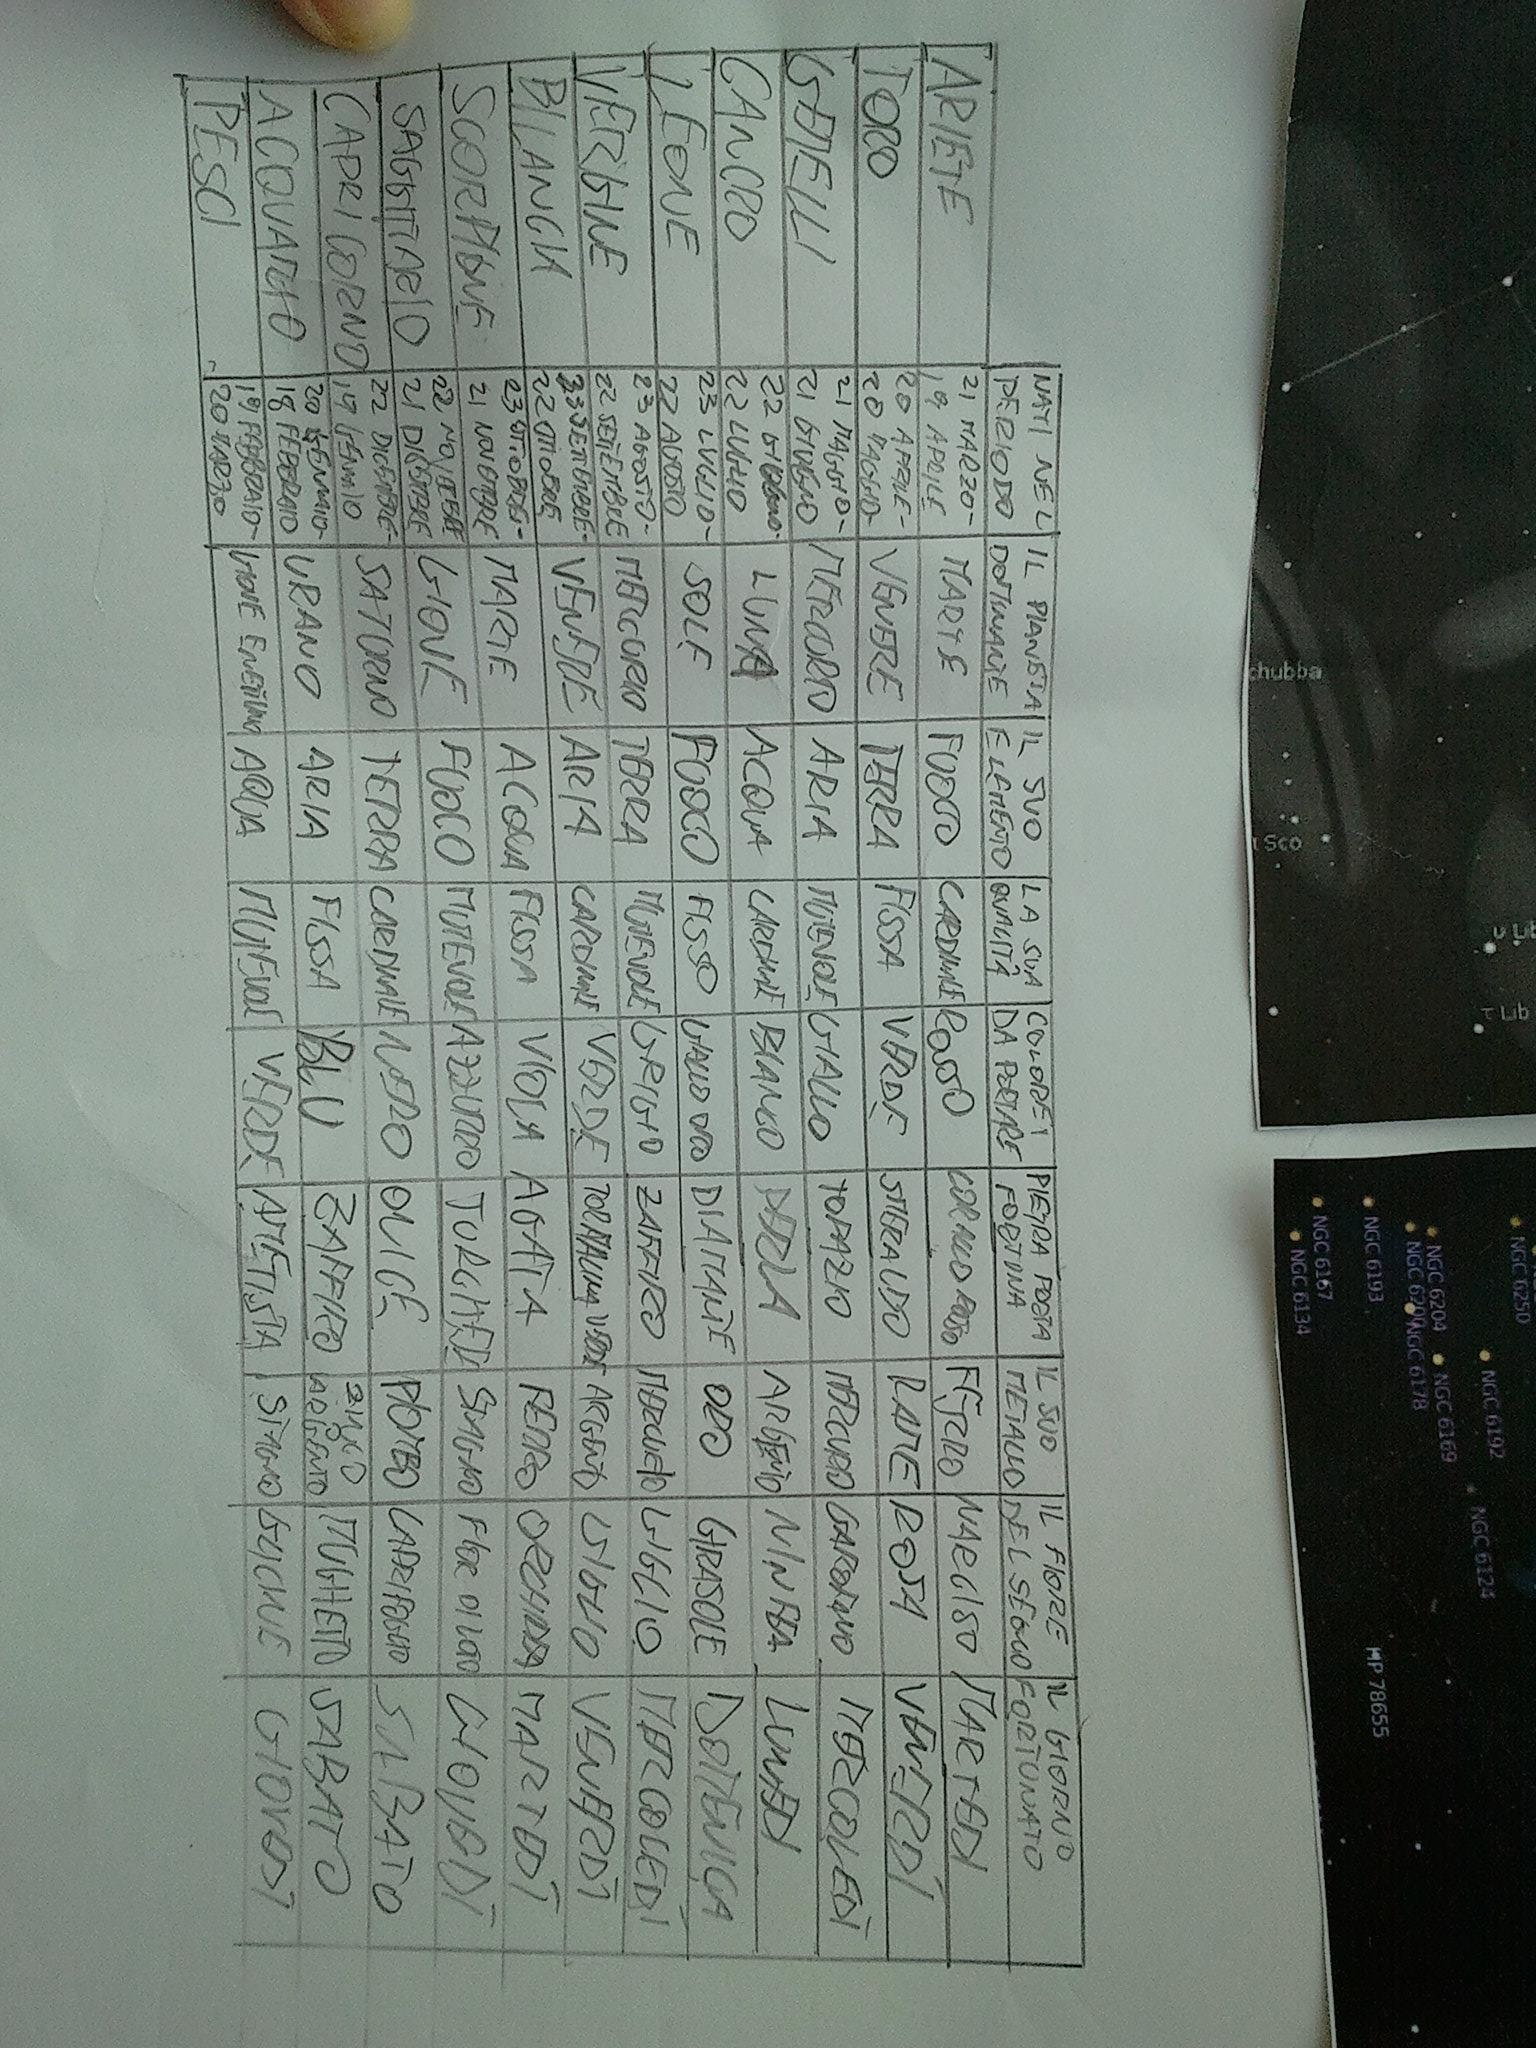 NATI NEL PERIODO IL PIANETA DOMINANTE IL SUO ELEMENTO LA SUA QUALITÀ COLORE DA PORTARE PIETRA PORTA FORTUNA IL SUO METALLO IL FIORE DEL SEGNO IL GIORNO FORTUNATO
ARIETE 21 MARZO- 19 APRILE MARTE FUOCO CARDINALE ROSSO CORNO ROSSO FERRO NARCISO MARTEDI
TORO 20 APRILE- 20 MAGGIO VENERE TERRA FISSA VERDE SMERALDO RAME ROSA VENERDI
GEMELLI 21 MAGGIO- 21 GIUGNO MERCURIO ARIA MUTEVOLE GIALLO TOPAZIO MERCURIO GAROFANO MERCOLEDI
CANCRO 22 GIUGNO- 22 LUGLIO LUNA ACQUA CARDINALE BIANCO PERLA ARGENTO NINFEA LUNEDI
LEONE 23 LUGLIO- 22 AGOSTO SOLE FUOCO FISSO GIALLO ORO DIAMANTE ORO GIRASOLE DOMENICA
VERGINE 23 AGOSTO- 22 SETTEMBRE MERCURIO TERRA MUTEVOLE GRIGIO ZAFFIRO MERCURIO GIGLIO MERCOLEDI
BILANCIA 23 SETTEMBRE- 22 OTTOBRE VENERE ARIA CARDINALE VERDE TORMALINA VERDE ARGENTO GIGLIO VENERDI
SCORPIONE 23 OTTOBRE- 21 NOVEMBRE MARTE ACQUA FISSA VIOLA AGATA FERRO ORCHIDEA MARTEDI
SAGITTARIO 22 NOVEMBRE 21 DICEMBRE GIOVE FUOCO MUTEVOLE AZZURRO TURCHESE STAGNO FIOR DI LOTO GIOVEDI
CAPRICORNO 22 DICEMBRE- 19 GENNAIO SATURNO TERRA CARDINALE NERO ONICE PIOMBO CAPRIFOGLIO SABATO
ACQUARIO 20 GENNAIO- 18 FEBBRAIO URANO ARIA FISSA BLU ZAFFIRO ZINCO ARGENTO MUGHETTO SABATO
PESCI 19 FEBBRAIO- 20 MARZO GIOVE E NETTUNO AQUA MUTEVOLE VERDE AMETISTA STAGNO GLICINE GIOVEDI
chubba
Sco
NGC 6134
NGC 6167
NGC 6193
NGC 6200
NGC 6204
NGC 6178
NGC 6169
NGC 6192
NGC 6250
NGC 6124
HP 78655